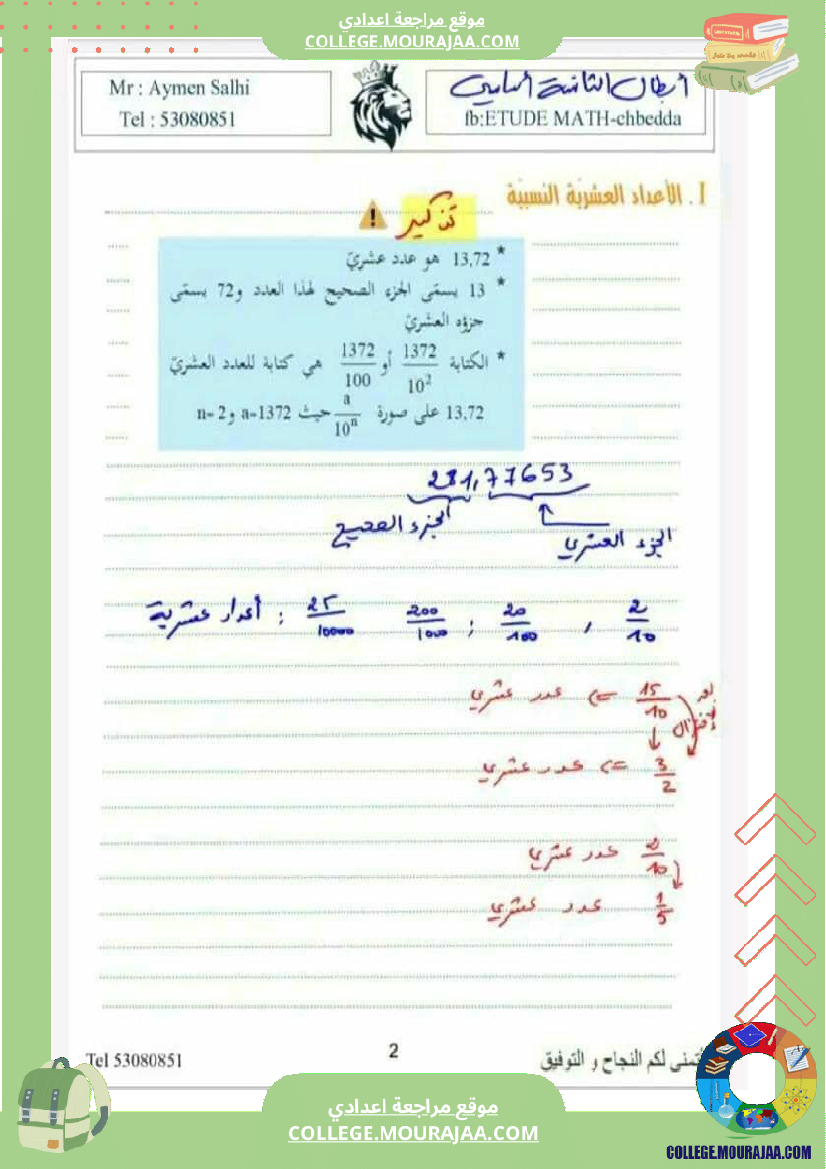 موقع مراجعة اعدادي
COLLEGE.MOURAJAA.COM
Mr : Aymen Salhi
Tel : 53080851
أبطال الثامنة أساسي
fb:ETUDE MATH-chbedda
I. الأعداد العشرية النسبية
تذكير
* 13,72 هو عدد عشريّ
* 13 يسمّى الجزء الصحيح لهذا العدد و72 يسمّى
جزؤه العشريّ
* الكتابة 1372/10² أو 1372/100 هي كتابة للعدد العشريّ
13,72 على صورة a/10ⁿ حيث a=1372 و n=2
281,77653
الجزء الصحيح
الجزء العشري
2/10 , 20/100 ; 200/1000 25/10000 : أعداد عشرية
15/10 => عدد عشري
بعد
إختزال
3/2 => عدد عشري
2/10 عدد عشري
1/5 عدد عشري
Tel 53080851
2
أتمنى لكم النجاح و التوفيق
موقع مراجعة اعدادي
COLLEGE.MOURAJAA.COM
COLLEGE.MOURAJAA.COM